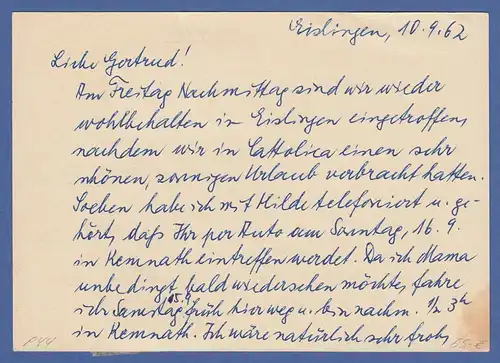 Eislingen, 10.9.62
Liebe Gertrud!
Am Freitag Nachmittag sind wir wieder
wohlbehalten in Eislingen eingetroffen,
nachdem wir in Cattolica einen sehr
schönen, sonnigen Urlaub verbracht hatten.
Soeben habe ich mit Hilde telefoniert u. ge-
hört, daß Ihr per Auto am Sonntag, 16.9.
in Kemnath eintreffen werdet. Da ich Mama
unbedingt bald wiedersehen möchte, fahre
ich Samstag 15.9. früh hier weg u. bin nachm. ½ 3h
in Kemnath. Ich wäre natürlich sehr froh,
P44